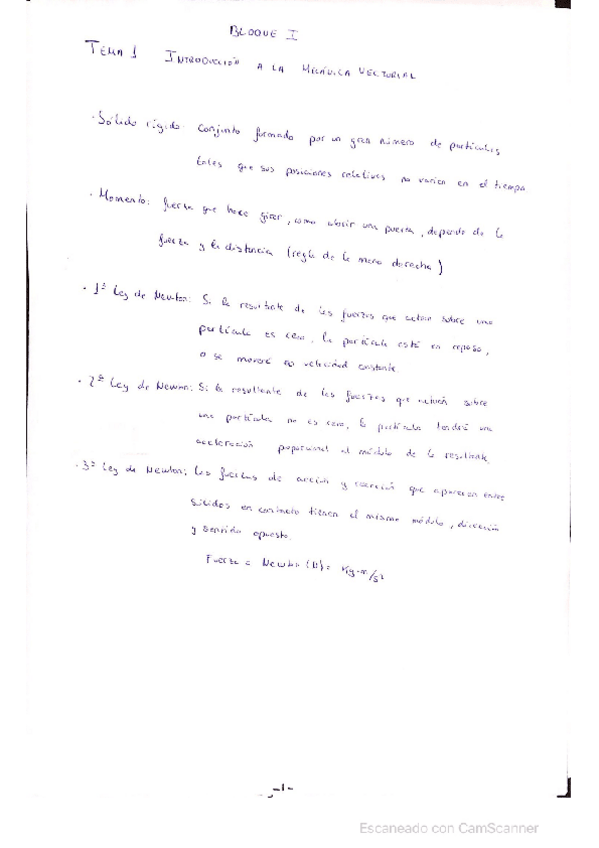 BLOQUE I
TEMA 1 INTRODUCCIÓN A LA MECÁNICA VECTORIAL
· Sólido rígido: Conjunto formado por un gran número de partículas
tales que sus posiciones relativas no varían en el tiempo
· Momento: fuerza que hace girar, como abrir una puerta, depende de la
fuerza y la distancia (regla de la mano derecha)
· 1ª Ley de Newton: Si la resultante de las fuerzas que actúan sobre una
partícula es cero, la partícula está en reposo,
o se moverá en velocidad constante
· 2ª Ley de Newton: Si la resultante de las fuerzas que actúan sobre
una partícula no es cero, la partícula tendrá una
aceleración proporcional al módulo de la resultante.
· 3ª Ley de Newton: Las fuerzas de acción y reacción que aparecen entre
sólidos en contacto tienen el mismo módulo, dirección
y sentido opuesto.
Fuerza = Newton (N) = Kg·m/s²
-1-
Escaneado con CamScanner